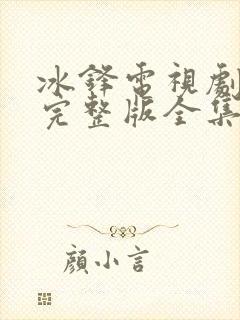 冰鋒電視劇
完整版全集
顏小言